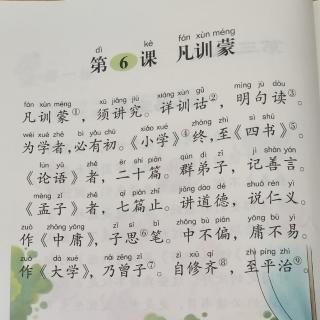 dì kè fán xùn méng
第 6 课 凡训蒙
fán xùn méng xū jiǎng jiū xiáng xùn gǔ míng jù dòu
凡训蒙①，须讲究。详训诂②，明句读③。
wéi xué zhě bì yǒu chū xiǎo xué zhōng zhì sì shū
为学者，必有初。《小学》④终，至《四书》⑤。
lún yǔ zhě èr shí piān qún dì zǐ jì shàn yán
《论语》者，二十篇。群弟子，记善言。
mèng zǐ zhě qī piān zhǐ jiǎng dào dé shuō rén yì
《孟子》者，七篇止。讲道德，说仁义。
zuò zhōng yōng zǐ sī bǐ zhōng bù piān yōng bú yì
作《中庸》，子思⑥笔。中不偏，庸不易。
zuò dà xué nǎi zēng zǐ zì xiū qí zhì píng zhì
作《大学》，乃曾子⑦。自修齐⑧，至平治⑨。